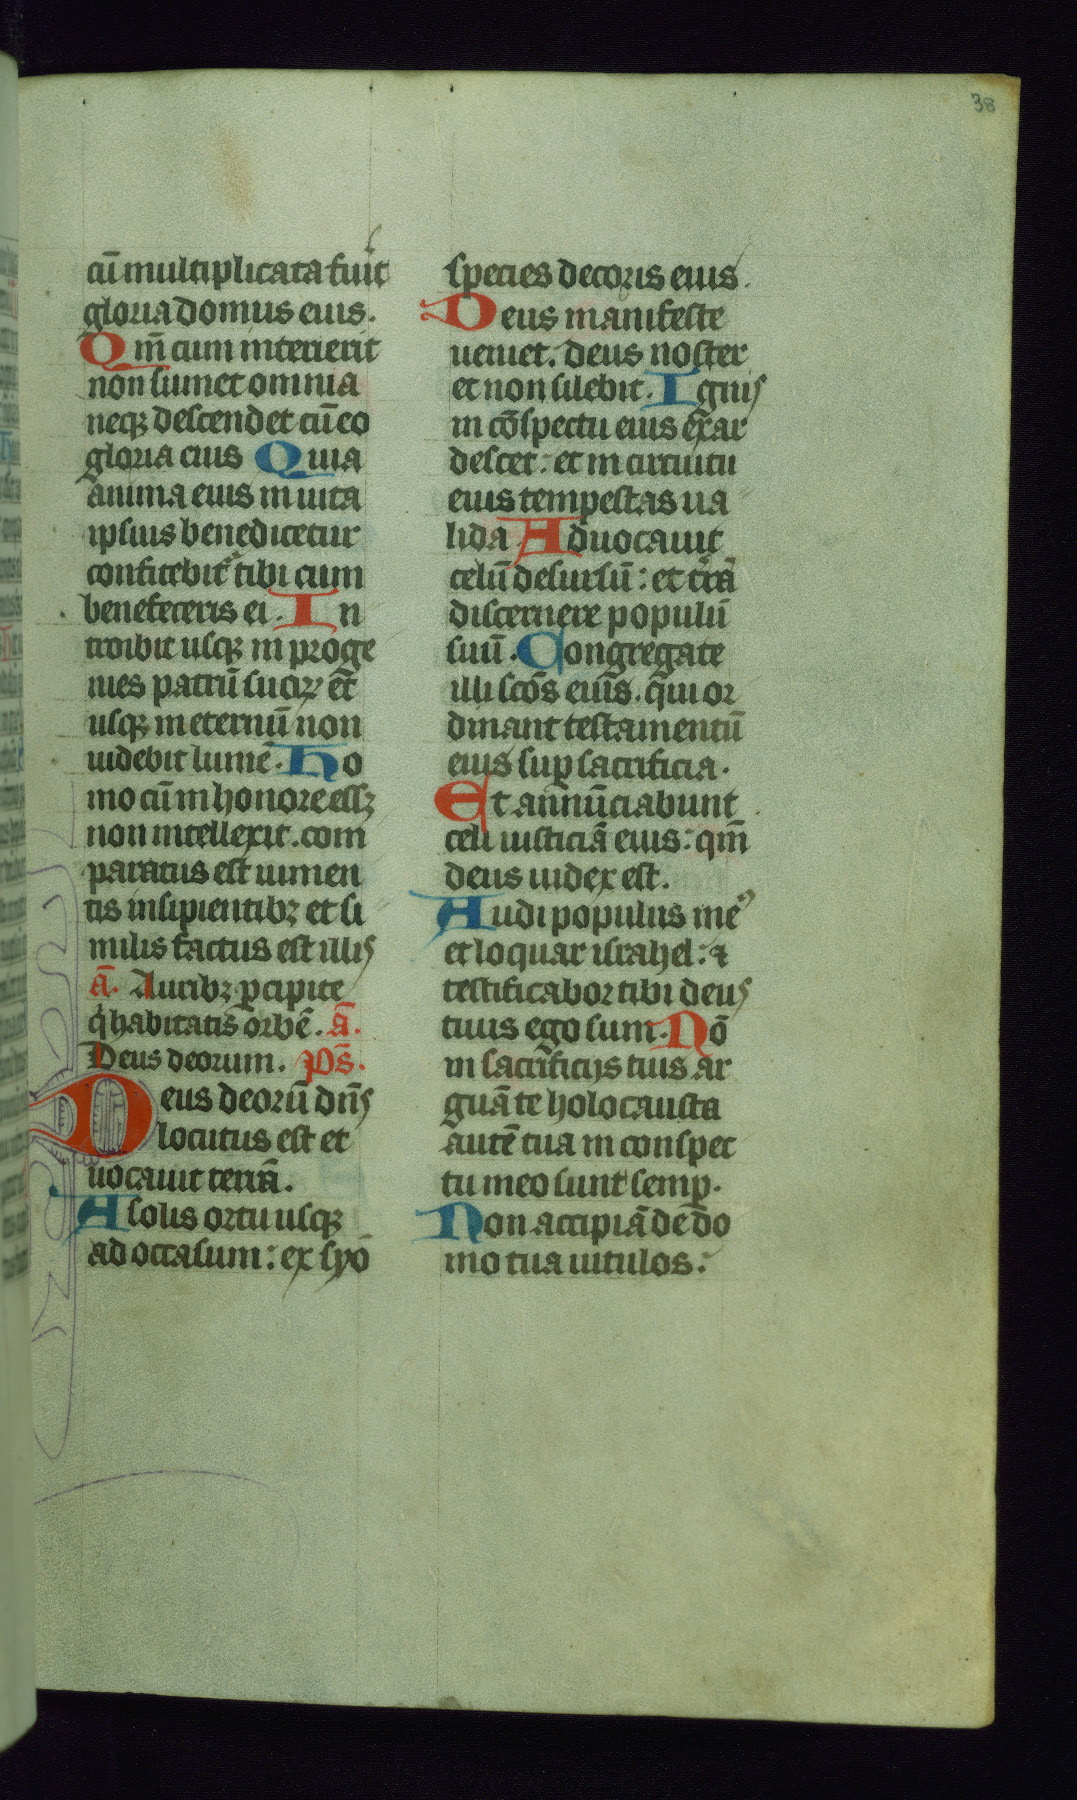 38
cū multiplicata fuĩt
gloria domus eius.
Qm̄ cum interierit
non sumet omnia
neqꝫ descendet cū eo
gloria eius Quia
anima eius in uita
ipsius benedicetur
confitebit᷑ tibi cum
benefeceris ei. In
troibit usqꝫ in proge
nies patrū suoꝝ et̄
usqꝫ in eternū non
uidebit lumē. Ho
mo cū in honore essꝫ
non intellexit. com
paratus est iumen
tis insipientibꝫ et si
milis factus est illis
ā. Auribꝫ ꝑcipite
q̇ habitatis orbē. ā.
Deus deorum. Ps̄.
Deus deorū dn̄s
locutus est et
uocauit terrā.
A solis ortu usqꝫ
ad occasum: ex syō
species decoris eius.
Deus manifeste
ueniet. deus noster
et non silebit. Ignis
in cōspectu eius exar
descet: et in circuitu
eius tempestas ua
lida Aduocauit
celū desursū: et tr̄ā
discernere populū
suū. Congregate
illi scōs eius. qui or
dinant testamentū
eius suꝑ sacrificia.
Et annūciabunt
celi iusticiā eius: qm̄
deus iudex est.
Audi populus meꝰ
et loquar israhel: ⁊
testificabor tibi deus
tuus ego sum. Nō
in sacrificijs tuis ar
guā te holocausta
autē tua in conspec
tu meo sunt semꝑ.
Non accipiā de do
mo tua uitulos: